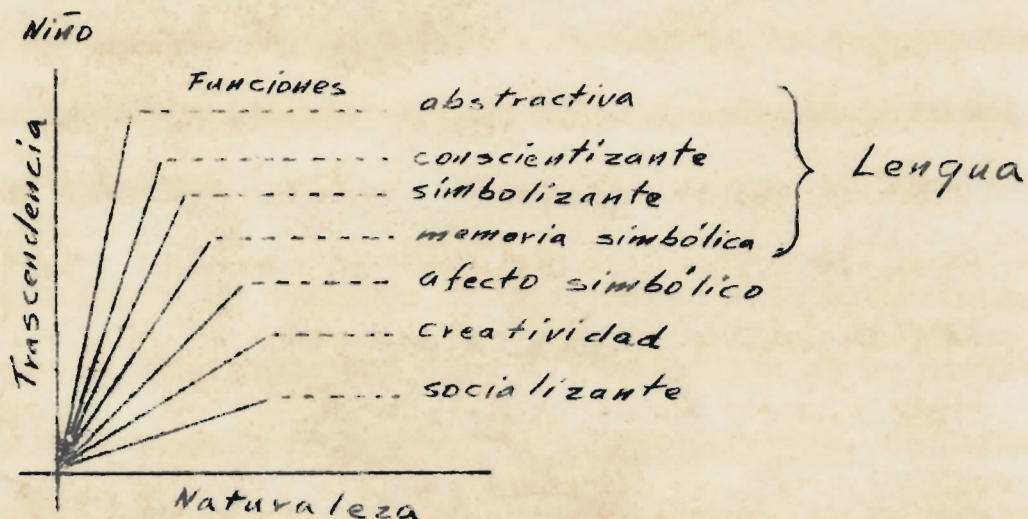 Niño
Funciones
abstractiva
conscientizante
simbolizante
memoria simbólica
afecto simbólico
creatividad
socializante
Lengua
Trascendencia
Naturaleza